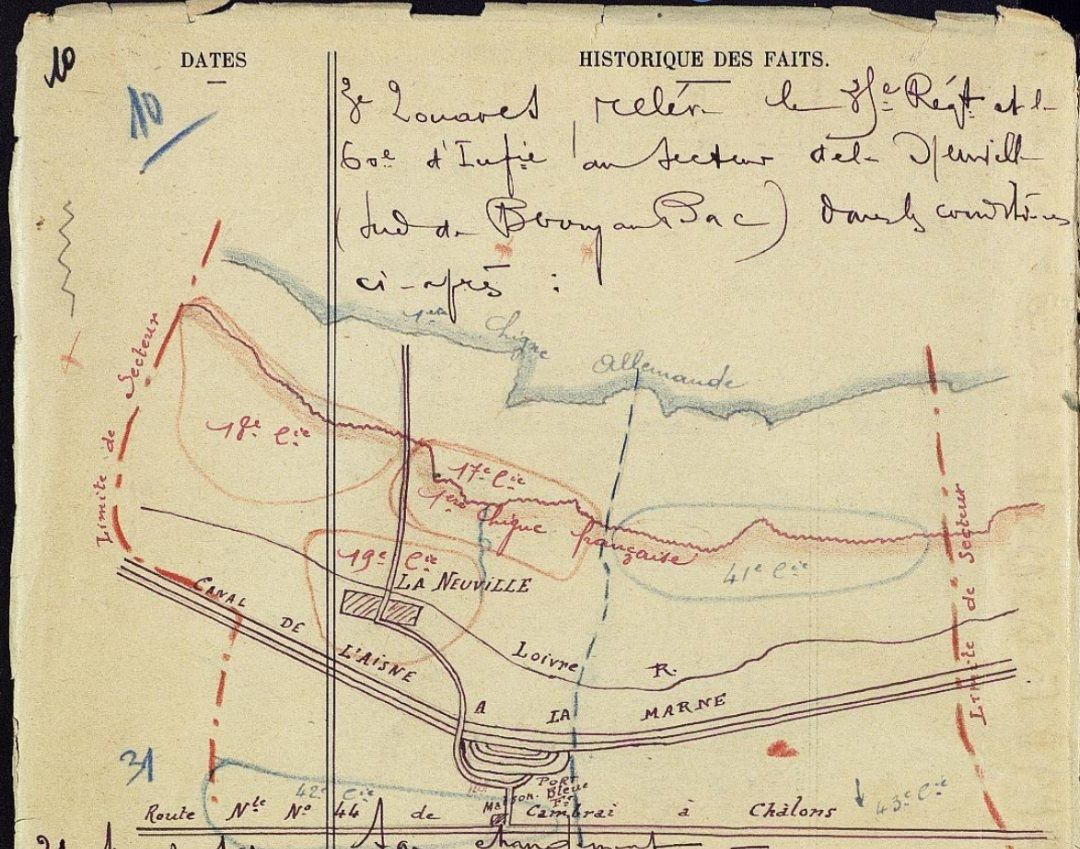 10
DATES
HISTORIQUE DES FAITS.
10
3e Zouaves relève le Régt et le
60e d'Infie au secteur de la Neuville
(sud de Berry au Bac) dans les conditions
ci-après :
1ère Ligne Allemande
Limite de Secteur
18e Cie
17e Cie
1ère Ligne française
19e Cie
41e Cie
Limite de Secteur
LA NEUVILLE
CANAL DE L'AISNE A LA MARNE
Loivre R.
31
42e Cie
PORT
Maison Bleue
43e Cie
Route Nle No 44 de Cambrai à Châlons
changement